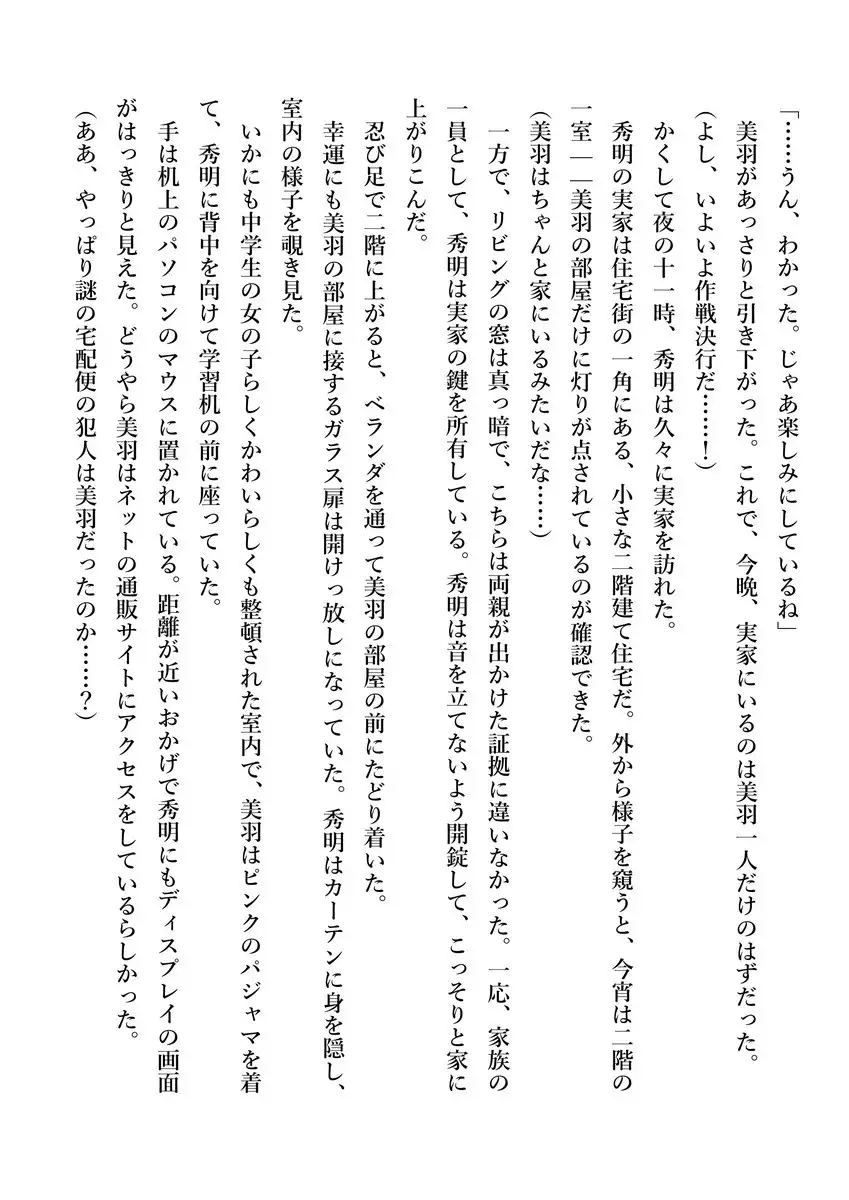 「……うん、わかった。じゃあ楽しみにしているね」
美羽があっさりと引き下がった。これで、今晩、実家にいるのは美羽一人だけのはずだった。
(よし、いよいよ作戦決行だ……！)
かくして夜の十一時、秀明は久々に実家を訪れた。
秀明の実家は住宅街の一角にある、小さな二階建て住宅だ。外から様子を窺うと、今宵は二階の
一室――美羽の部屋だけに灯りが点されているのが確認できた。
(美羽はちゃんと家にいるみたいだな……)
一方で、リビングの窓は真っ暗で、こちらは両親が出かけた証拠に違いなかった。一応、家族の
一員として、秀明は実家の鍵を所有している。秀明は音を立てないよう開錠して、こっそりと家に
上がりこんだ。
忍び足で二階に上がると、ベランダを通って美羽の部屋の前にたどり着いた。
幸運にも美羽の部屋に接するガラス扉は開けっ放しになっていた。秀明はカーテンに身を隠し、
室内の様子を覗き見た。
いかにも中学生の女の子らしくかわいらしくも整頓された室内で、美羽はピンクのパジャマを着
て、秀明に背中を向けて学習机の前に座っていた。
手は机上のパソコンのマウスに置かれている。距離が近いおかげで秀明にもディスプレイの画面
がはっきりと見えた。どうやら美羽はネットの通販サイトにアクセスをしているらしかった。
(ああ、やっぱり謎の宅配便の犯人は美羽だったのか……？)